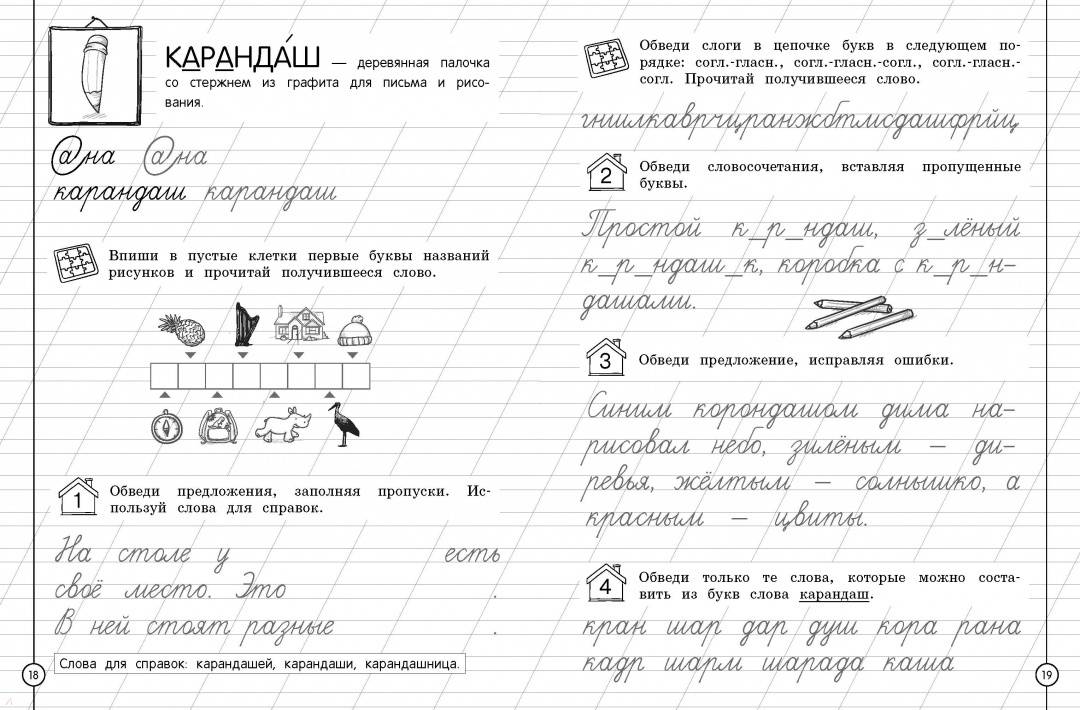 КАРАНДА́Ш — деревянная палочка
со стержнем из графита для письма и рисо-
вания.
@на @на
карандаш карандаш
Впиши в пустые клетки первые буквы названий
рисунков и прочитай получившееся слово.
1 Обведи предложения, заполняя пропуски. Ис-
пользуй слова для справок.
На столе у есть
своё место. Это .
В ней стоят разные .
Слова для справок: карандашей, карандаши, карандашница.
18
Обведи слоги в цепочке букв в следующем по-
рядке: согл.-гласн., согл.-гласн.-согл., согл.-гласн.-
согл. Прочитай получившееся слово.
2 Обведи словосочетания, вставляя пропущенные
буквы.
Простой к_р_ндаш, з_лёный
к_р_ндаш_к, коробка с к_р_н-
дашами.
3 Обведи предложение, исправляя ошибки.
Синим корондашом дима на-
рисовал небо, зилёным — ди-
ревья, жёлтым — солнышко, а
красным — цвиты.
4 Обведи только те слова, которые можно соста-
вить из букв слова карандаш.
кран шар дар душ кора рана
кадр шарм шарада каша
19